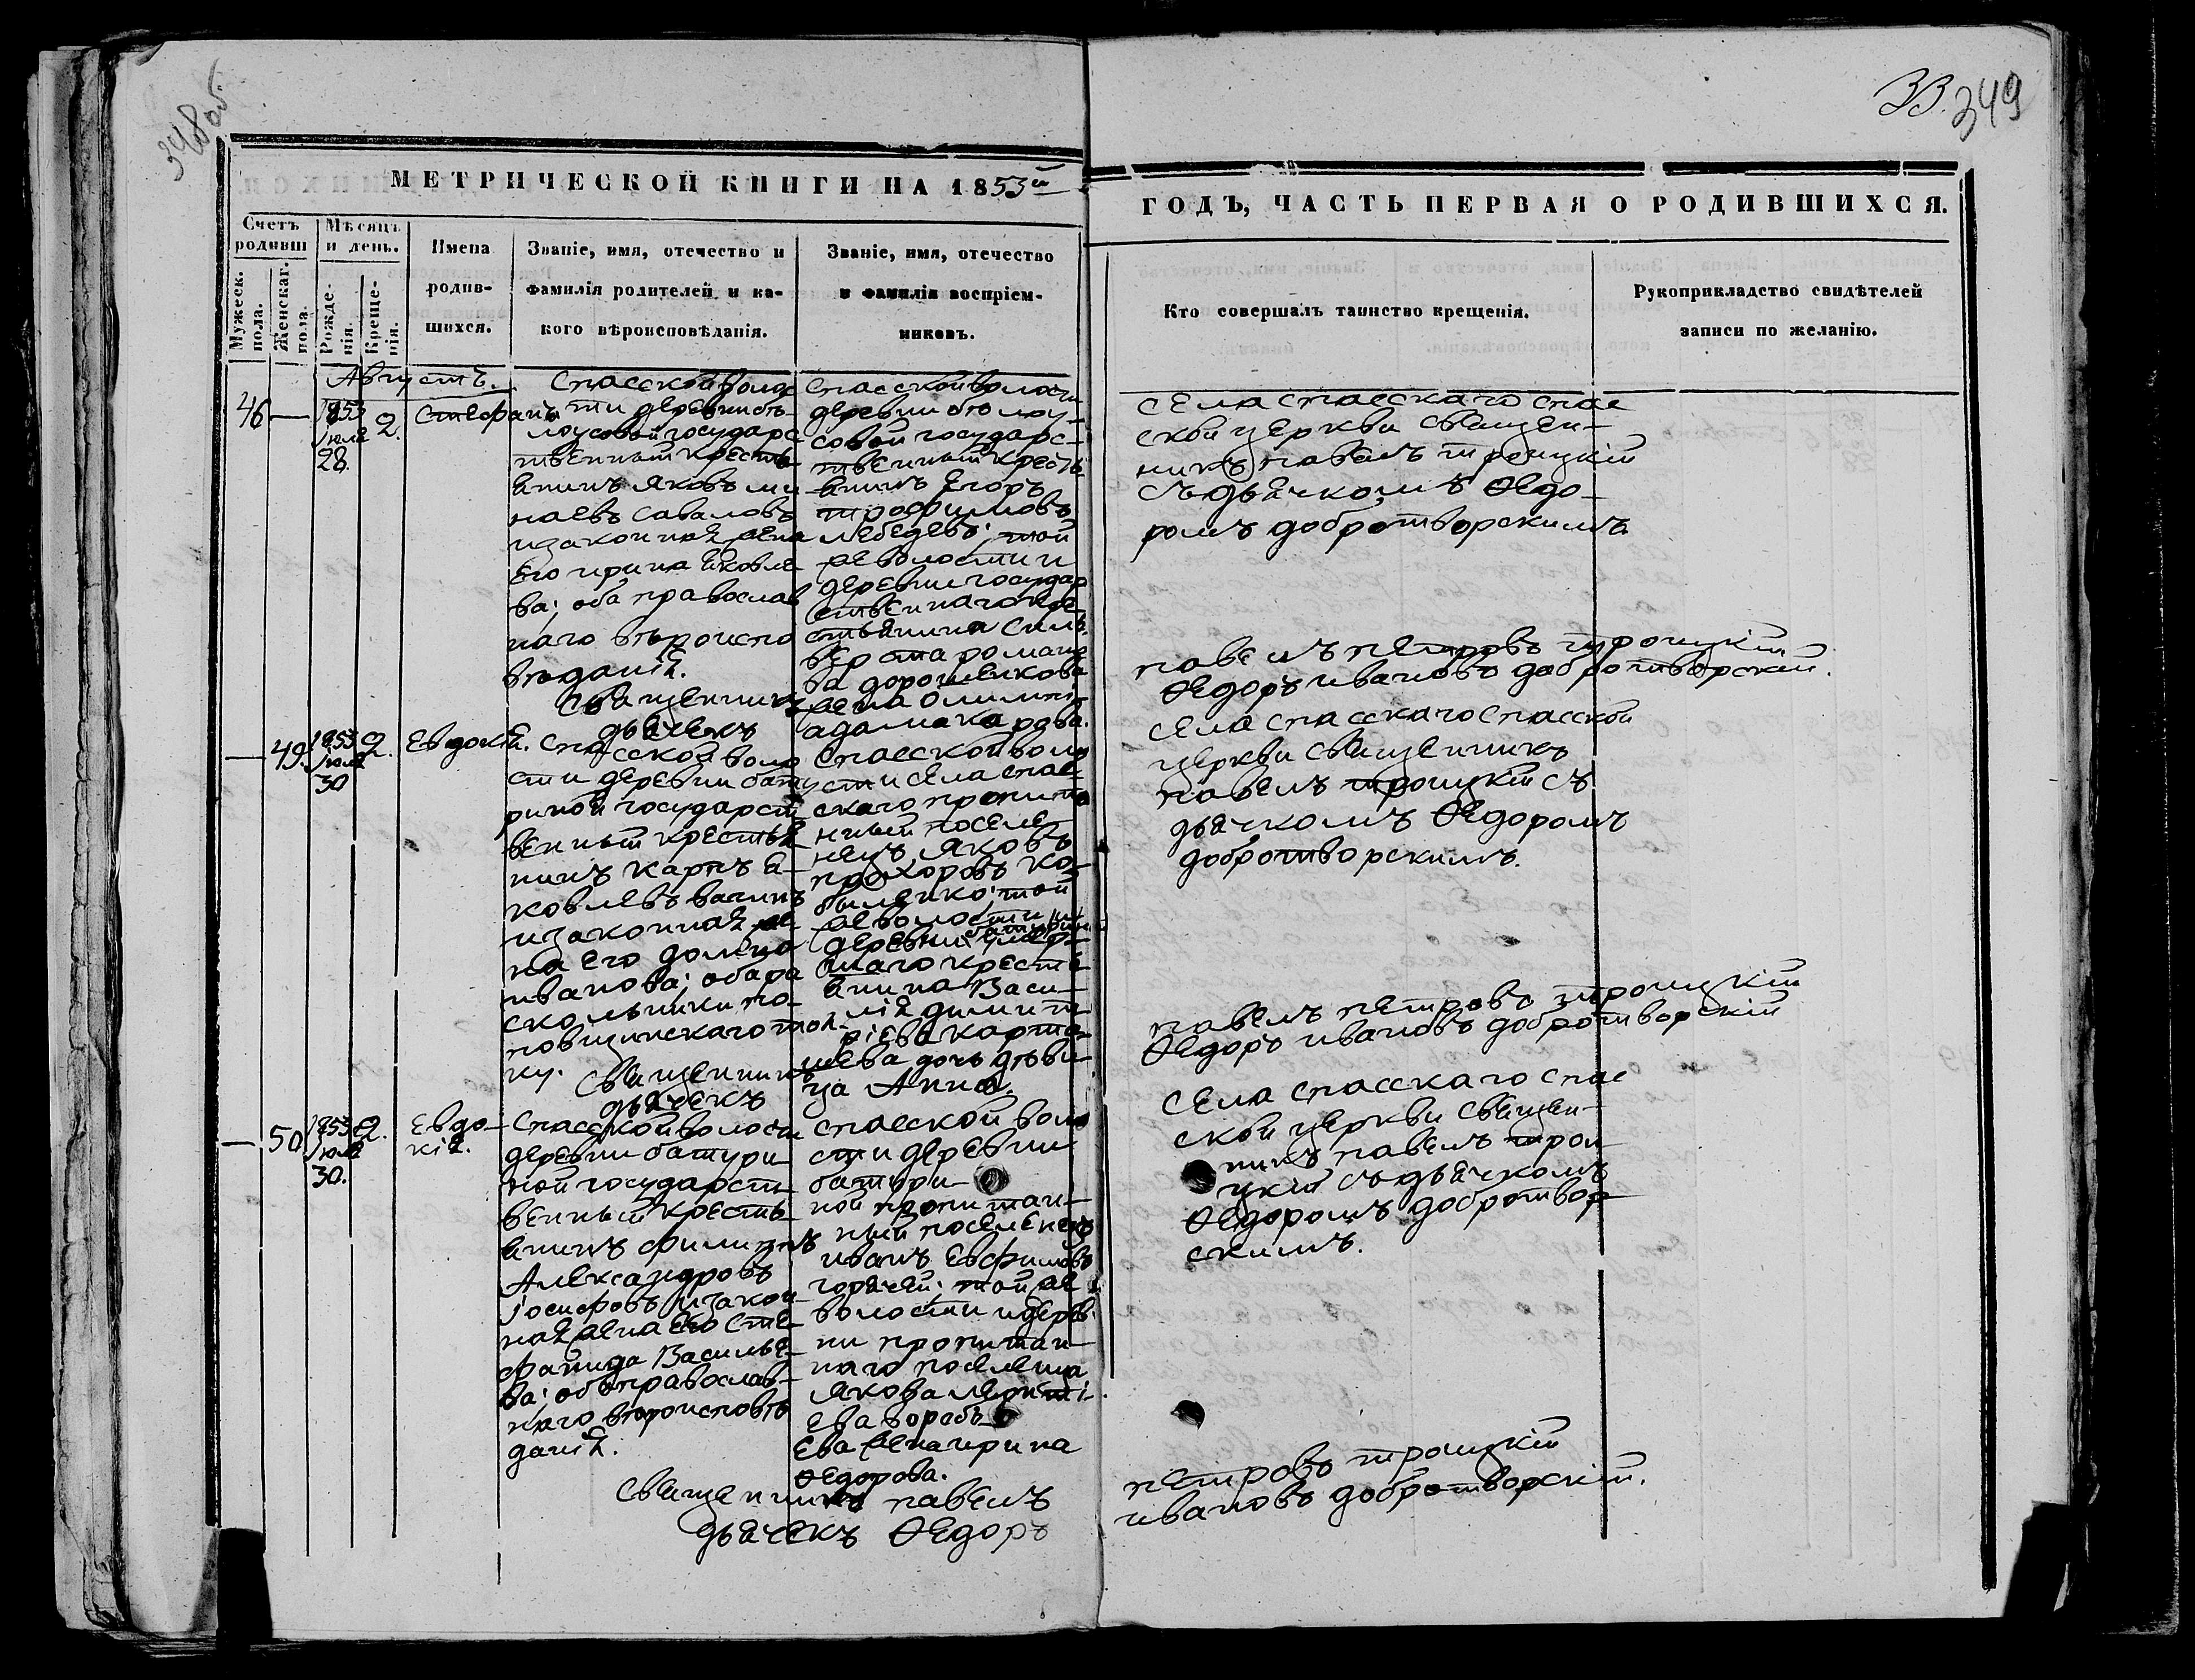 348 об.
33. 349
МЕТРИЧЕСКОЙ КНИГИ НА 1853й
ГОДЪ, ЧАСТЬ ПЕРВАЯ О РОДИВШИХСЯ.
Счетъ родивш
Мужеск. пола.
Женскаг. пола.
Мѣсяцъ и день.
Рожденія.
Крещенія.
Имена
родив-
шихся.
Званіе, имя, отечество и
фамилія родителей и ка-
кого вѣроисповѣданія.
Званіе, имя, отечество
и фамилія воспріем-
никовъ.
Кто совершалъ таинство крещенія.
Рукоприкладство свидѣтелей
записи по желанію.
Августъ.
46 —
1853
Іюля
28.
2.
Стефанъ
Спасской воло
сти деревни бѣ-
лоусовой государс-
твенный кресть-
янинъ Яковъ ми
наевъ Савамовъ
и законная жена
его ирина яковле
ва; оба православ
наго вѣроиспо
вѣданія.
Спасской волости
деревни бѣлоу-
совой государс-
твенный кресть
янинъ Егоръ
трофимовъ
лебедевъ; той
же волости и
деревни государ
ственнаго кре
стьянина Сили
верста романо
ва дорошенкова
жена олимпі
ада макарова.
села спасскаго спас
ской церкви священ-
никъ павелъ троицкій
съ дьячкомъ Ѳедо-
ромъ добротворскимъ.
Священникъ
павелъ петровъ троицкій
дьячекъ
Ѳедоръ ивановъ добротворскій.
— 49.
1853
Іюля
30
2.
Евдокія.
Спасской воло
сти деревни бату
риной государст
венный крестья
нинъ карпъ я-
ковлевъ вагинъ
и законная же-
на его домна
иванова; оба ра
скольники по-
повщинскаго тол-
ку.
спасской воло
сти села спас-
скаго пропита
нный поселе-
нецъ Яковъ
прохоровъ ко-
быленко; той
же волости и
деревни батуриной умер-
шаго кресть
янина Васи-
лія димит-
ріева карта-
шева дочь дѣви-
ца Анна.
села спасскаго спасской
церкви священникъ
павелъ троицкій съ
дьячкомъ Ѳедоромъ
добротворскимъ.
Священникъ
павелъ петровъ троицкій
дьячекъ
Ѳедоръ ивановъ добротворскій
— 50
1853
Іюля
30.
2.
Евдо-
кія.
Спасской волости
деревни батури
ной государст-
венный кресть-
янинъ филиппъ
Александровъ
Іосифовъ и закон
ная жена его Сте-
фанида Василье-
ва; оба православ-
наго вѣроисповѣ
данія.
спасской воло
сти деревни
батури-
ной пропитан-
ный поселенецъ
иванъ Евфимовъ
горячей; той же
волости и дерев-
ни пропитан-
наго поселенца
Якова леонті-
ева воробь
ева жена ирина
Ѳедорова.
села спасскаго спас
ской церкви священ-
никъ павелъ трои
цкій съ дьячкомъ
Ѳедоромъ добротвор
скимъ.
Священникъ павелъ
петровъ троицкій
дьячекъ Ѳедоръ
ивановъ добротворскій.